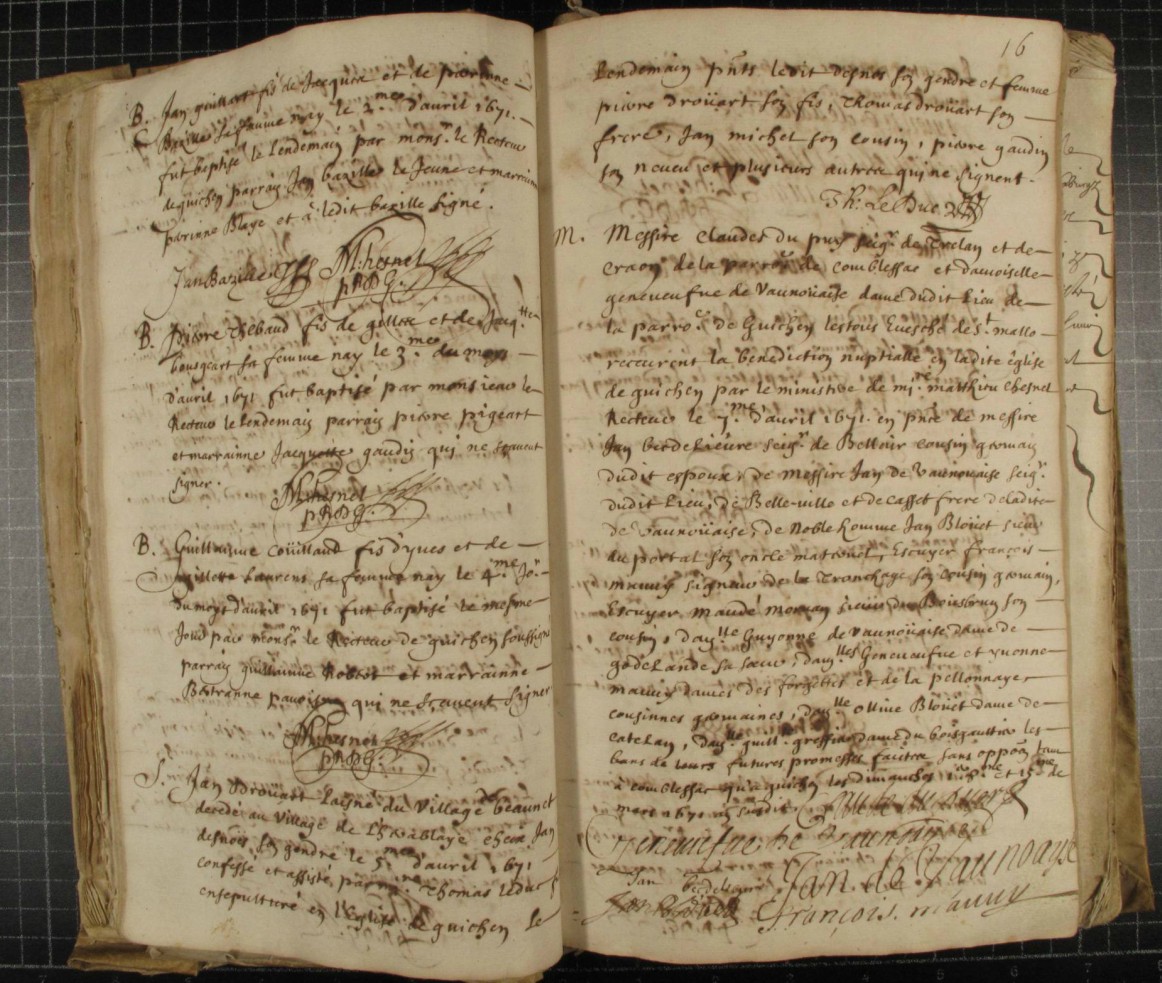 B. Jan guillart fis de Jacques et de perrinne
Bazille sa femme nay le 2.me d'auril 1671.
fut baptisé le lendemain par mons.r le Recteur
de guichen parrain Jan bazille le Jeune et marrainne
perinne Blaye et à ledit bazille signé.
Jan Bazille M: chesnel
p.R.D.G.
B. Pierre Thebaud fis de gillette et de Jacq.tte
bougeart sa femme nay le 3.me du moys
d'auril 1671 fut baptisé par monsieur le
Recteur le lendemain parrain pierre pigeart
et marrainne Jacquette gaudin qui ne sçauent
signer.
M: chesnel
p.R.D.G.
B. Guillaume coüillaud fis d'yues et de
gillette Laurens sa femme nay le 4.me Jo.r
du moys d'auril 1671 fut baptisé le mesme
Jour par mons.r le Recteur de guichen soussigné
parrain guillaume et marrainne
Bertranne qui ne sçauent signer
M: chesnel
p.R.D.G.
S. Jan Droüart Laisné du Village beaunet
decedé au Village de chéz Jan
desnos son gendre le 5.me d'auril 1671
confessé et assisté par Thomas leduc
ensepulturé en l'Eglise de guichen le
16
Lendemain p.nts ledit desnos son gendre et femme
pierre droüart son fis, Thomas droüart son
frere, Jan michel son cousin, pierre gaudin
son neueu et plusieurs autres qui ne signent.
Th: Le Duc
M. Messire Claudes du puy seig.r de et de
craon de la parro.e de comblessac et damoiselle
geneueufue de Vaunoüaise dame dudit Lieu de
la parro.e de Guichen lestous Euesché de S.t mallo
receurent la benediction nuptialle en ladite église
de guichen par le ministere de mi.re matthieu chesnel
Recteur le 7.me d'auril 1671. en p.nce de messire
Jan berdeLieure seig.r de Bellair cousin germain
dudit espoux, de Messire Jan de Vaunouaise seig.r
dudit Lieu, de Belle-ville et de casset frere deladite
de Vaunoüaise, de Noble homme Jan Bloüet sieur
du portal son oncle maternel, Escuyer françois
mauny signeur de la Tronchaye son cousin germain,
Escuyer maudé moruan sieur du Boisbrun son
cousin, day.lle Guyonne de Vaunoüaise dame de
godeLande sa sœur, day.lles Geneueufue et yuonne
mauny dames des forgettes et de la pellonnaye
cousinnes germaines, day.lle olliue Bloüet dame de
catelan, day.lle guill. greffier dame du boisgautier les
bans de leurs futures promesses faittes sans oppo.on tant
à comblessac qu'a guichen les dimanches et 15.me de
mars 1671 susdit
geneuiefue de Vaunouaise
Jan berdelieure Jan. de. Vaunouayse
françois. mauny